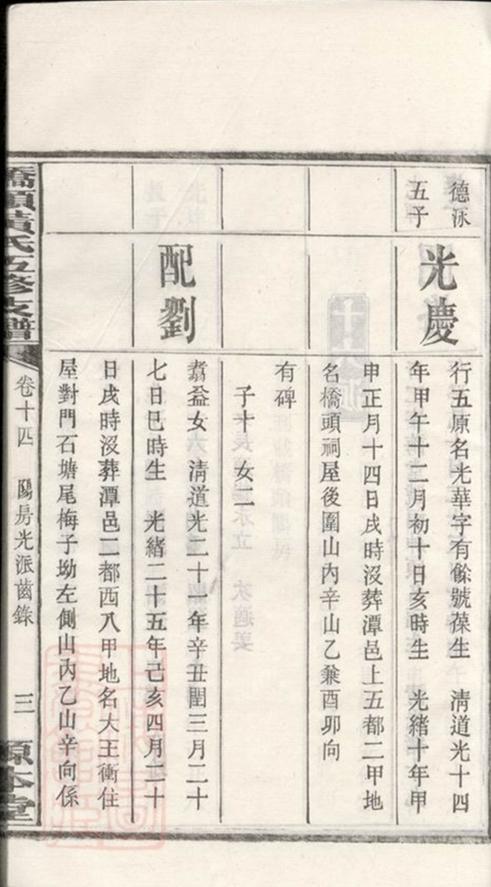 德泳
五子
光慶
行五原名光華字有餘號葆生　清道光十四
年甲午十二月初十日亥時生　光緒十年甲
申正月十四日戌時沒葬潭邑上五都二甲地
名橋頭祠屋後圍山內辛山乙兼酉卯向
有碑
子十　女二
配劉
翥益女　清道光二十一年辛丑閏三月二十
七日巳時生　光緒二十五年己亥四月二十
日戌時沒葬潭邑二都西八甲地名大王衝住
屋對門石塘尾梅子坳左側山內乙山辛向係
橋頭黃氏五修支譜
卷十四　陽房光派齒錄
三
源本堂